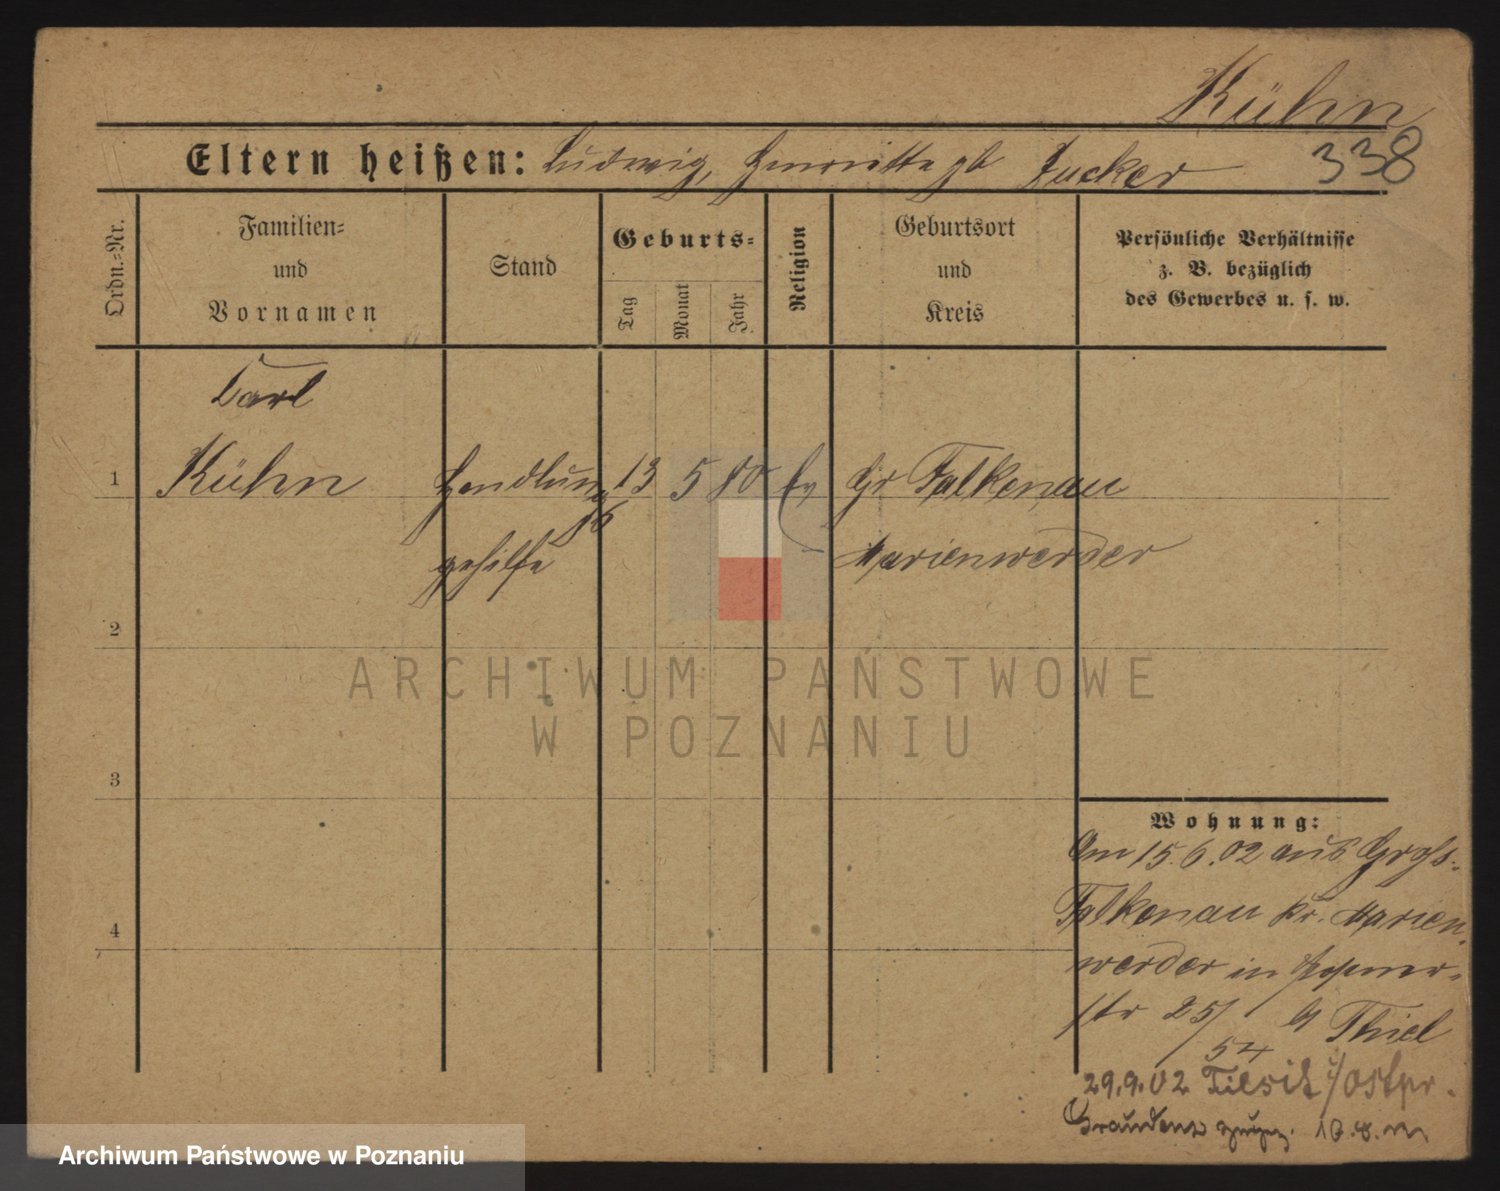 Kühn
338
Eltern heißen: Ludwig, Henriette gb Zucker
Ordn.-Nr.
Familien- und Vornamen
Stand
Geburts-
Tag
Monat
Jahr
Religion
Geburtsort und Kreis
Persönliche Verhältnisse
z. B. bezüglich
des Gewerbes u. s. w.
Carl
1 Kühn Handlungs 13 5 80 Ev Gr Falkenau
gehilfe Marienwerder
2
3
4
Wohnung:
Am 15.6.02 aus Groß-
Falkenau Kr. Marien-
werder in
str 25/ b Thiel
54
29.9.02 Tilsit i/Ostpr.
Graudenz
ARCHIWUM PAŃSTWOWE
W POZNANIU
Archiwum Państwowe w Poznaniu